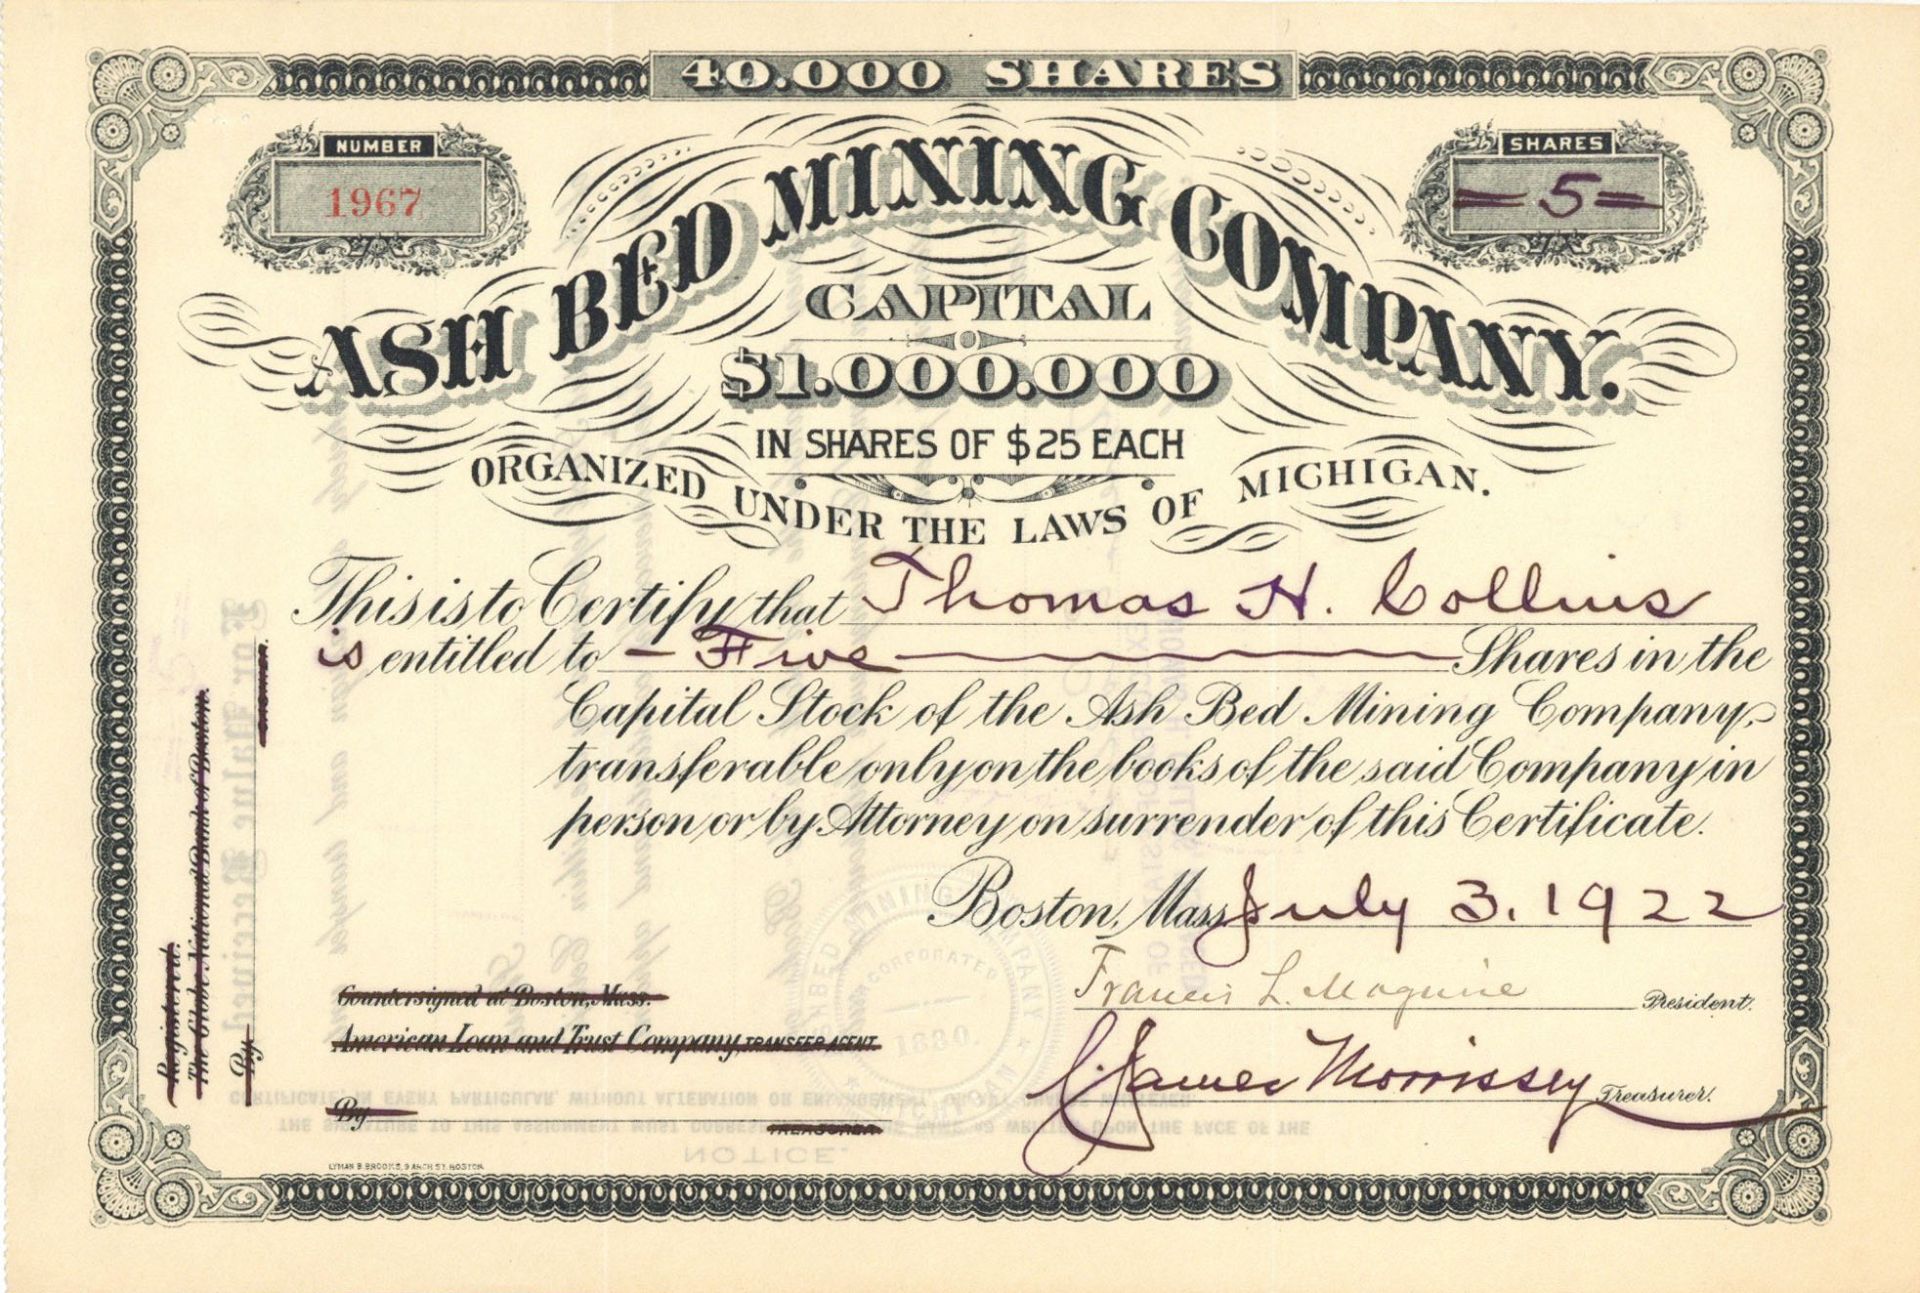 40.000 SHARES
NUMBER
1967
SHARES
= 5 =
ASH BED MINING COMPANY.
CAPITAL
$1.000.000
IN SHARES OF $25 EACH
ORGANIZED UNDER THE LAWS OF MICHIGAN.
This is to Certify that Thomas H. Collins
is entitled to - Five - Shares in the
Capital Stock of the Ash Bed Mining Company,
transferable only on the books of the said Company in
person or by Attorney on surrender of this Certificate.
Boston, Mass. July 3. 1922
Francis L. Maguire President.
James Morrissey Treasurer.
Countersigned at Boston, Mass.
American Loan and Trust Company, TRANSFER AGENT.
By
TREASURER.
Registered.
The Globe National Bank of Boston.
By
LYMAN B. BROOKS, 9 ARCH ST. BOSTON
ASH BED MINING COMPANY
INCORPORATED
1880.
MICHIGAN
NOTICE.
THE SIGNATURE TO THIS ASSIGNMENT MUST CORRESPOND WITH THE NAME AS WRITTEN UPON THE FACE OF THE
CERTIFICATE, IN EVERY PARTICULAR, WITHOUT ALTERATION OR ENLARGEMENT, OR ANY CHANGE WHATEVER.
For Value Received